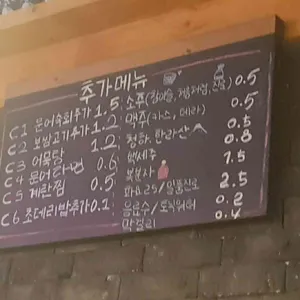 추가메뉴
C1 문어숙회추가 1.5
C2 보쌈고기추가 1.2
C3 어묵탕 1.2
C4 문어라면 0.6
C5 계란찜 0.5
C6 초데리밥추가 0.1
소주(참이슬, 처음처럼, 진로) 0.5
맥주(카스, 테라) 0.5
청하, 한라산 0.5
백세주 0.8
복분자 1.5
화요25/일품진로 2.5
음료수/토닉워터 0.2
막걸리 0.4